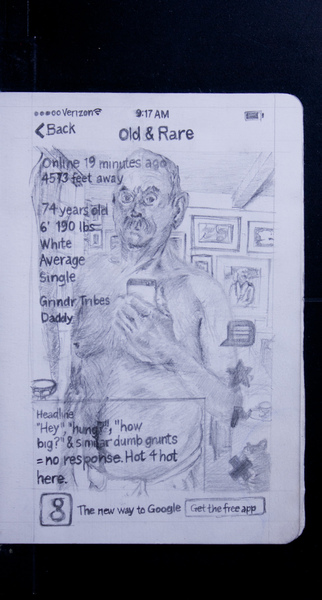 ●●●○○ Verizon 9:17 AM
Back
Old & Rare
Online 19 minutes ago
4573 feet away
74 years old
6' 190 lbs
White
Average
Single
Grindr Tribes
Daddy
Headline
"Hey", "hung?", "how
big?" & similar dumb grunts
= no response. Hot 4 hot
here.
8 The new way to Google Get the free app